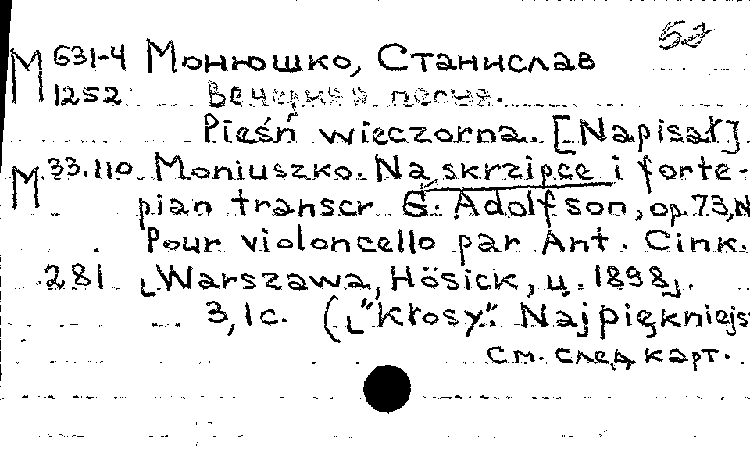 52
М 631-4 Монюшко, Станислав
1252 Вечерняя песня.
Pieśń wieczorna. [Napisał]
М 33.110 Moniuszko. Na skrzipce i forte-
pian transcr G. Adolfson, op. 73, N
Pour violoncello par Ant. Cink.
281 [Warszawa, Hösick, ц. 1898].
3, 1 с. (["Kłosy". Najpiękniejs
См. след карт.